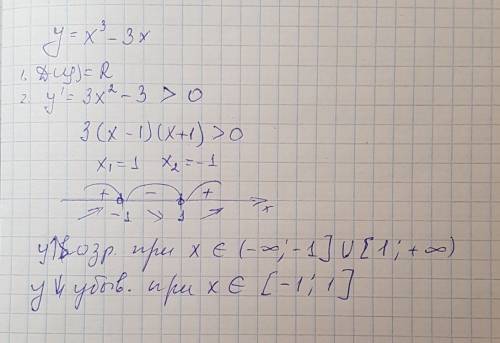 y = x³ - 3x
1. D(y) = R
2. y' = 3x² - 3 > 0
3(x - 1)(x + 1) > 0
x₁ = 1 x₂ = -1
+ - +
↗ -1 ↘ 1 ↗ x
y↑ возр. при x ∈ (-∞; -1] ∪ [1; +∞)
y↓ убыв. при x ∈ [-1; 1]